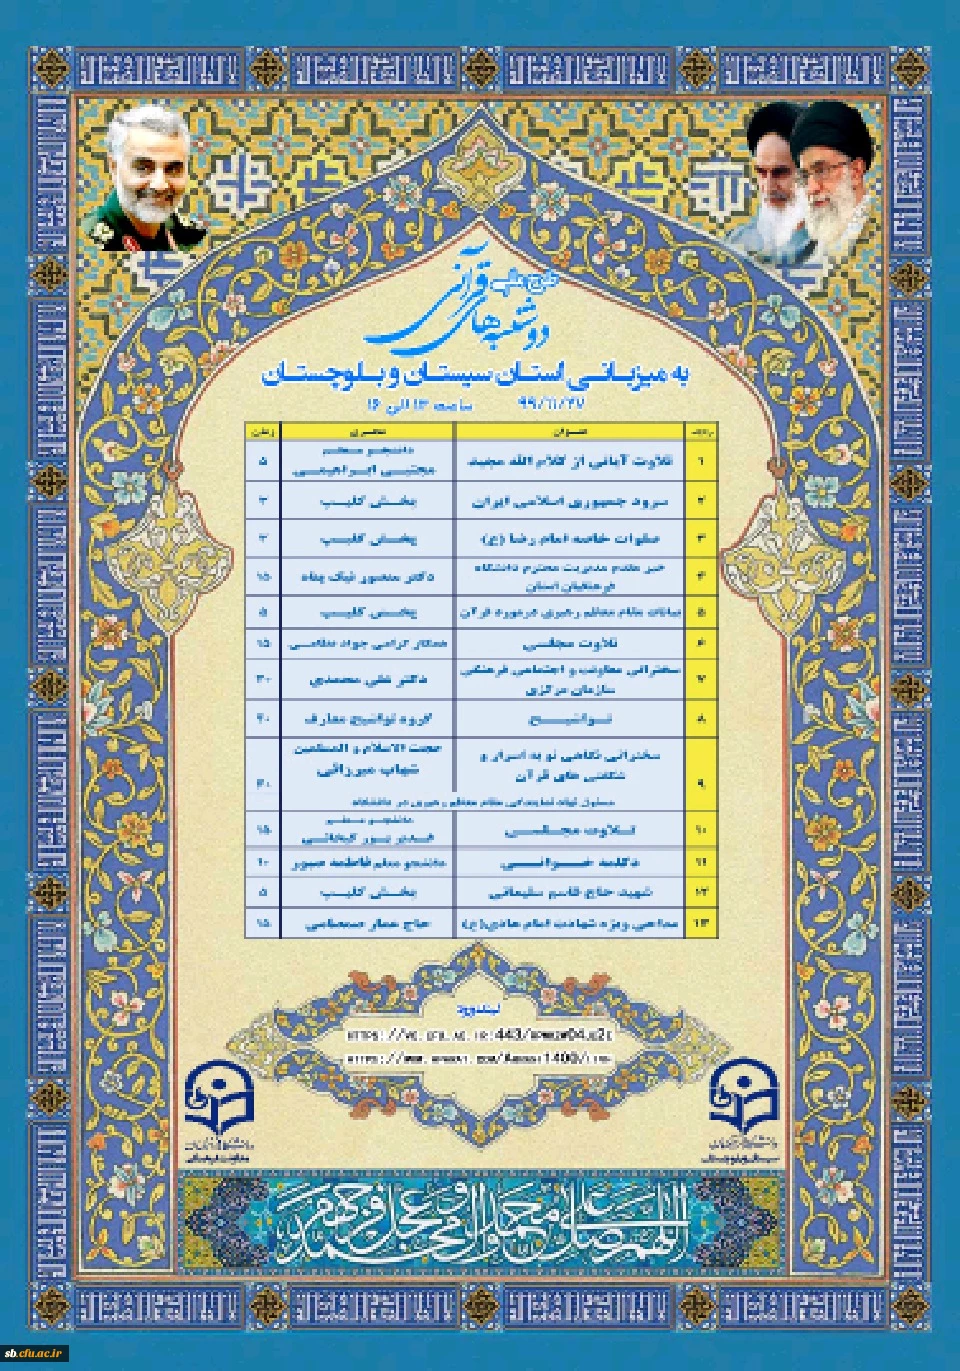 طرح ملی
دوشنبه‌های قرآنی
به میزبانی استان سیستان و بلوچستان
۹۹/۱۱/۲۷ ساعت ۱۳ الی ۱۶
ردیف عنوان مجری زمان
۱ تلاوت آیاتی از کلام الله مجید دانشجو معلم مجتبی ابراهیمی ۵
۲ سرود جمهوری اسلامی ایران پخش کلیپ ۳
۳ صلوات خاصه امام رضا (ع) پخش کلیپ ۲
۴ خیر مقدم مدیریت محترم دانشگاه فرهنگیان استان دکتر منصور نیک پناه ۱۵
۵ بیانات مقام معظم رهبری درمورد قرآن پخش کلیپ ۵
۶ تلاوت مجلسی همکار گرامی جواد ۱۵
۷ سخنرانی معاونت و اجتماعی فرهنگی سازمان مرکزی دکتر تقی محمدی ۳۰
۸ تواشیح گروه تواشیح معارف ۲۰
۹ سخنرانی نگاهی نو به اسرار و شگفتی های قرآن حجت الاسلام و المسلمین شهاب ۴۰
مسئول نهاد نمایندگی مقام معظم رهبری در دانشگاه
۱۰ تلاوت مجلسی دانشجو معلم ۱۵
۱۱ دکلمه خوانی دانشجو معلم فاطمه صبور ۱۰
۱۲ شهید حاج قاسم سلیمانی پخش کلیپ ۵
۱۳ مداحی ویژه شهادت امام هادی(ع) حاج عمار ۱۵
لینک ورود
دانشگاه فرهنگیان
سیستان و بلوچستان
دانشگاه فرهنگیان
معاونت فرهنگی
اللهم صل علی محمد و آل محمد و عجل فرجهم
sb.cfu.ac.ir